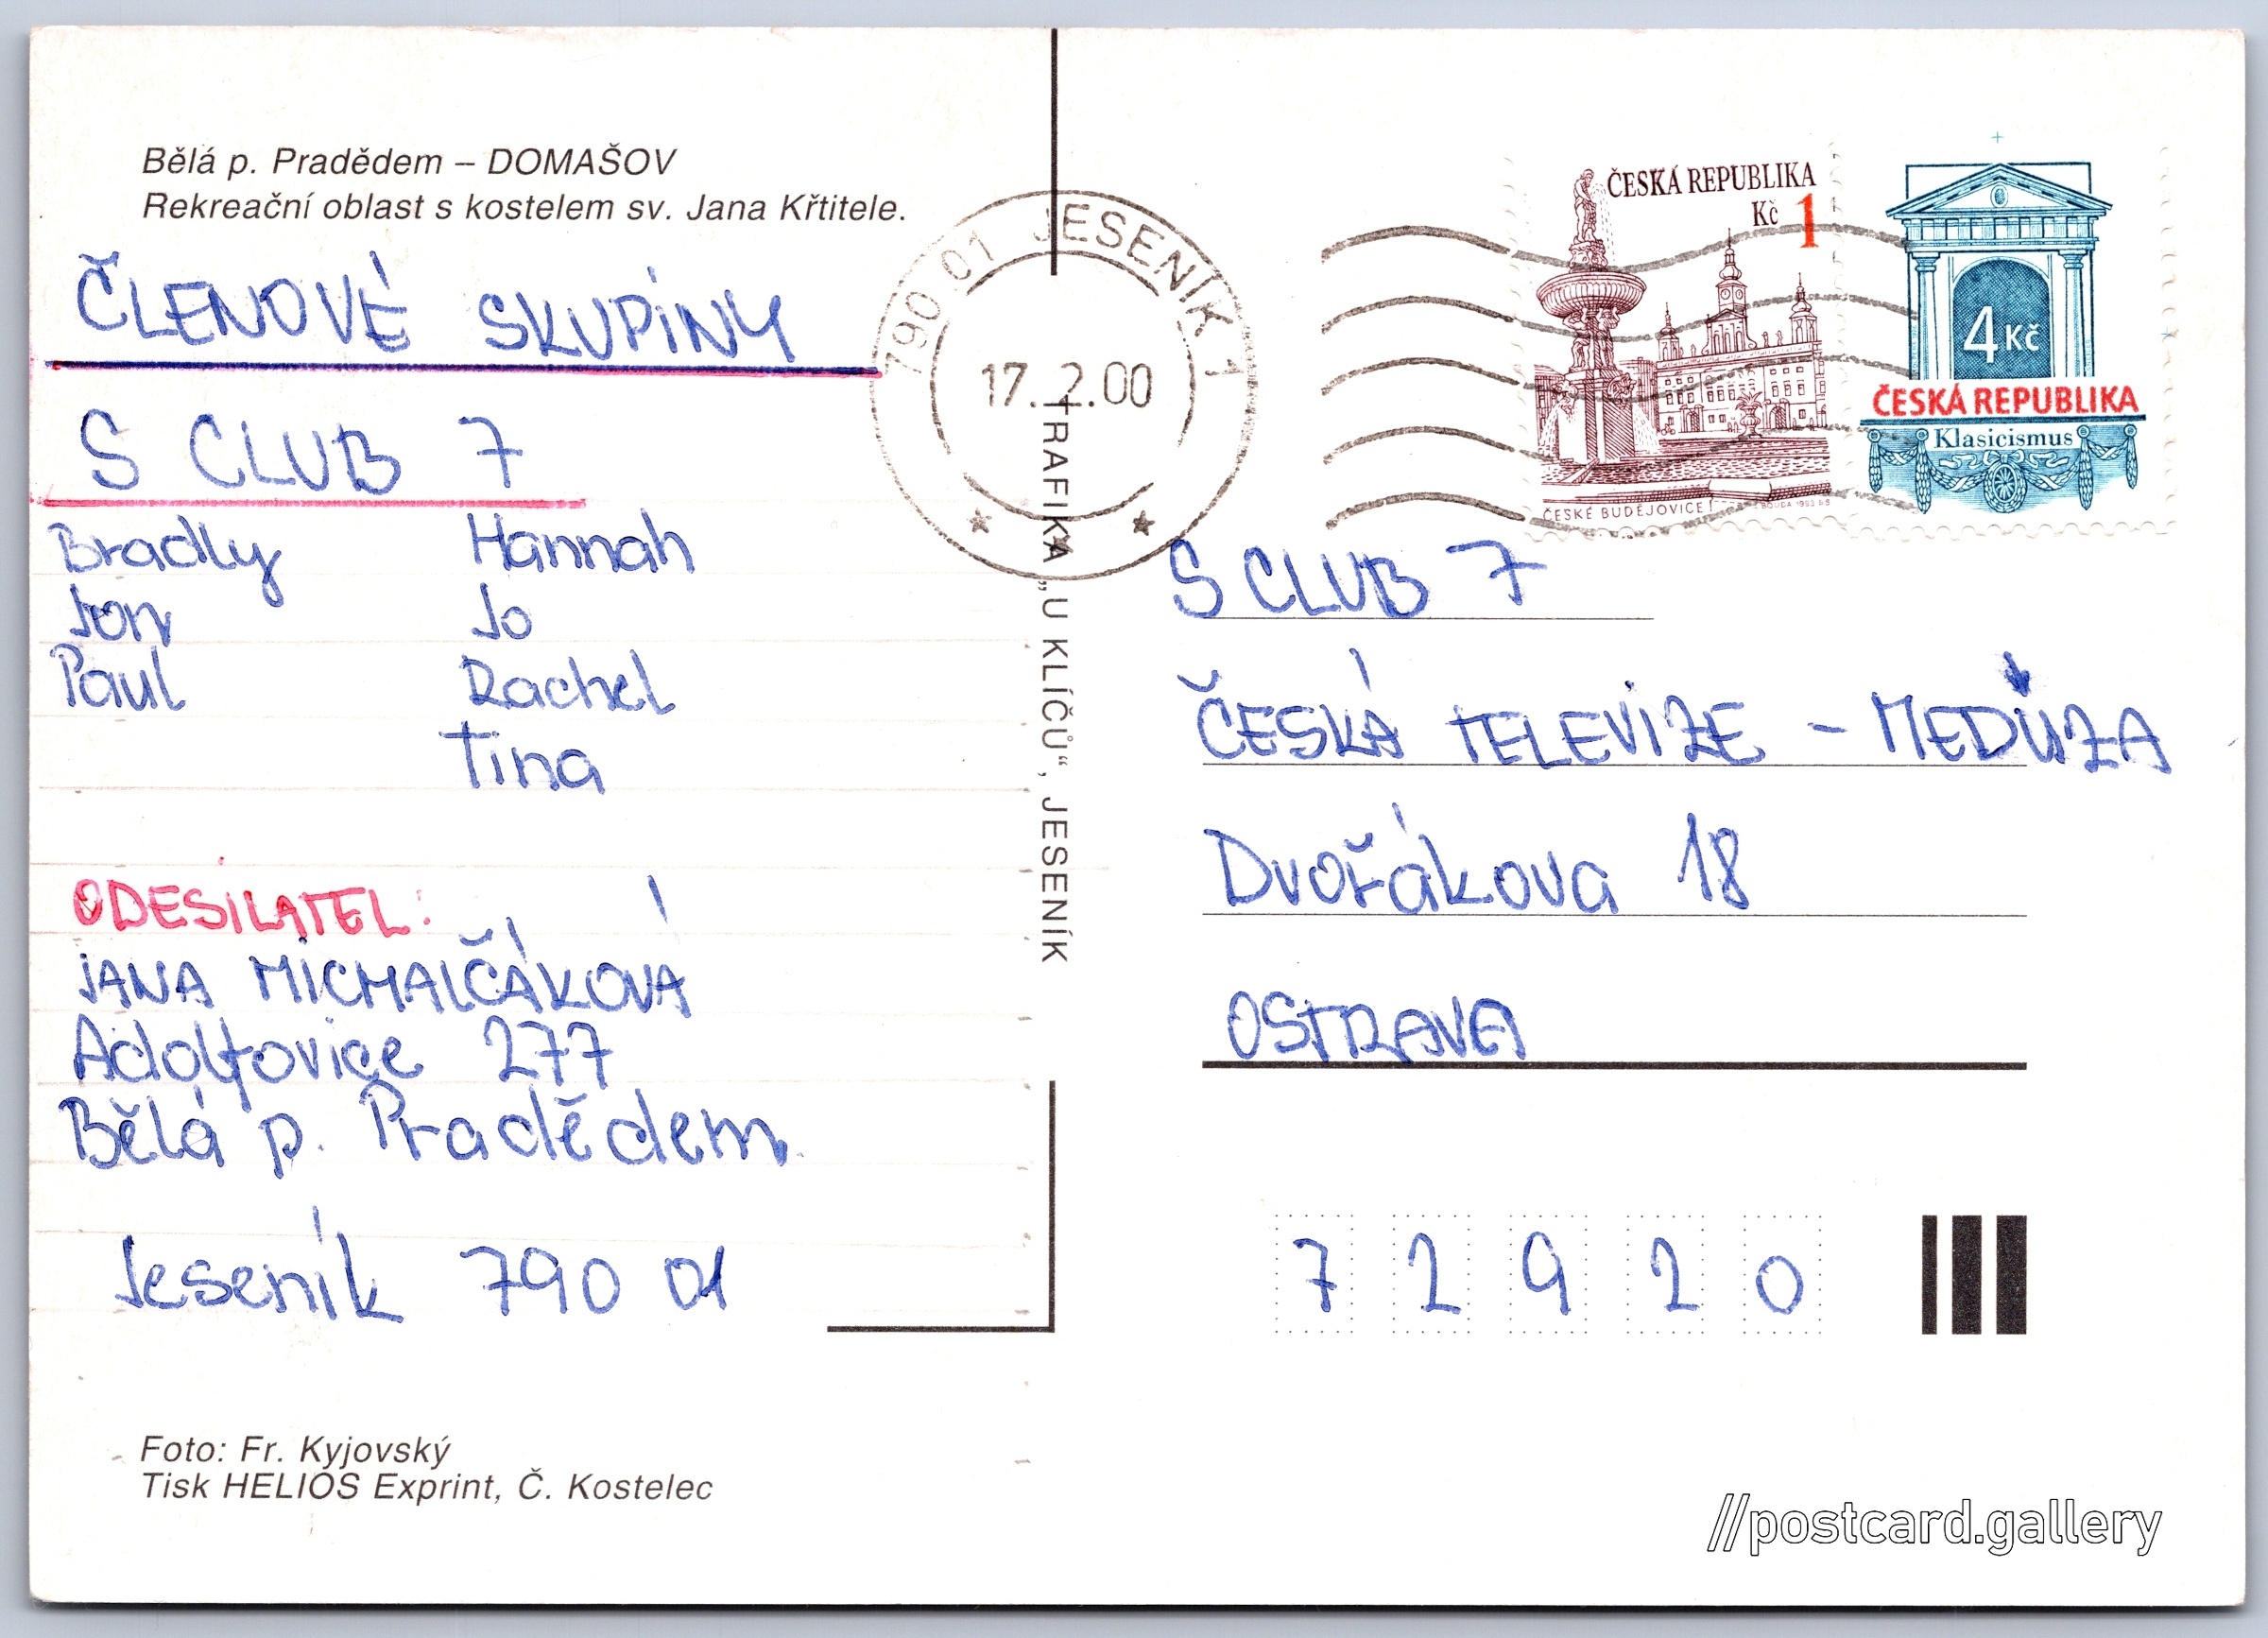 Bělá p. Pradědem – DOMAŠOV
Rekreační oblast s kostelem sv. Jana Křtitele.
ČLENOVÉ SKUPINY
S CLUB 7
Bradly Hannah
Jon Jo
Paul Rachel
Tina
ODESILATEL:
JANA MICHALČÁKOVÁ
Adolfovice 277
Bělá p. Pradědem
Jeseník 790 01
Foto: Fr. Kyjovský
Tisk HELIOS Exprint, Č. Kostelec
TRAFIKA „U KLÍČŮ“, JESENÍK
790 01 JESENÍK 1
17.2.00
ČESKÁ REPUBLIKA
Kč 1
ČESKÉ BUDĚJOVICE
4 Kč
ČESKÁ REPUBLIKA
Klasicismus
S CLUB 7
ČESKÁ TELEVIZE – MEDÚZA
Dvořákova 18
OSTRAVA
7 2 9 2 0
//postcard.gallery